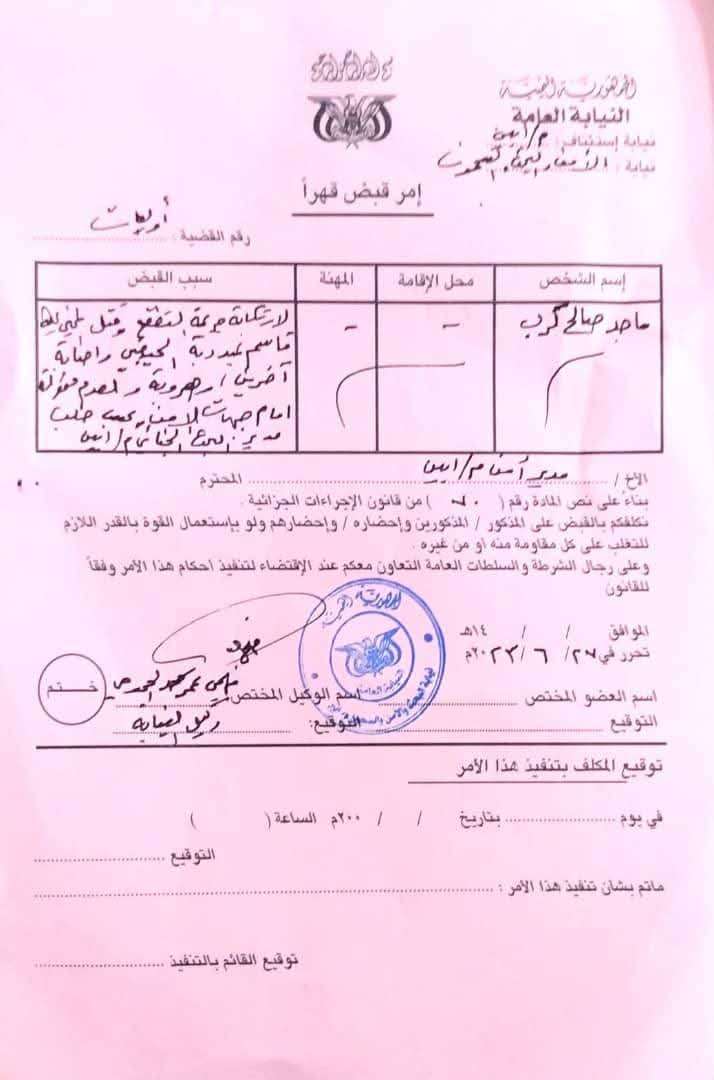 الجمهورية اليمنية
النيابة العامة
نيابة إستئناف م/ابين
نيابة : البحث والسجون
إمر قبض قهراً
رقم القضية : أوليات
إسم الشخص
محل الإقامة
المهنة
سبب القبض
ماجد صالح كرب
-
-
لارتكابه جريمة التقطع وقتل
قاسم بمديرية واصابة
آخرين
امام جهات الامن بحسب طلب
مدير البحث الجنائي م/ابين
الأخ / مدير أمن م/ابين المحترم
بناءً على نص المادة رقم ( ٧٠ ) من قانون الإجراءات الجزائية .
نكلفكم بالقبض على المذكور / المذكورين وإحضاره / وإحضارهم ولو بإستعمال القوة بالقدر اللازم
للتغلب على كل مقاومة منه او من غيره .
وعلى رجال الشرطة والسلطات العامة التعاون معكم عند الإقتضاء لتنفيذ احكام هذا الأمر وفقاً
للقانون
الموافق / / ١٤هـ
تحرر في ٢٧/ ٦ / ٢٠٢٣م
إسم العضو المختص
إسم الوكيل المختص
التوقيع
التوقيع: وكيل النيابة
ختم
توقيع المكلف بتنفيذ هذا الأمر
في يوم بتاريخ / / ٢٠٠م الساعة ( )
التوقيع
ماتم بشان تنفيذ هذا الامر :
توقيع القائم بالتنفيذ